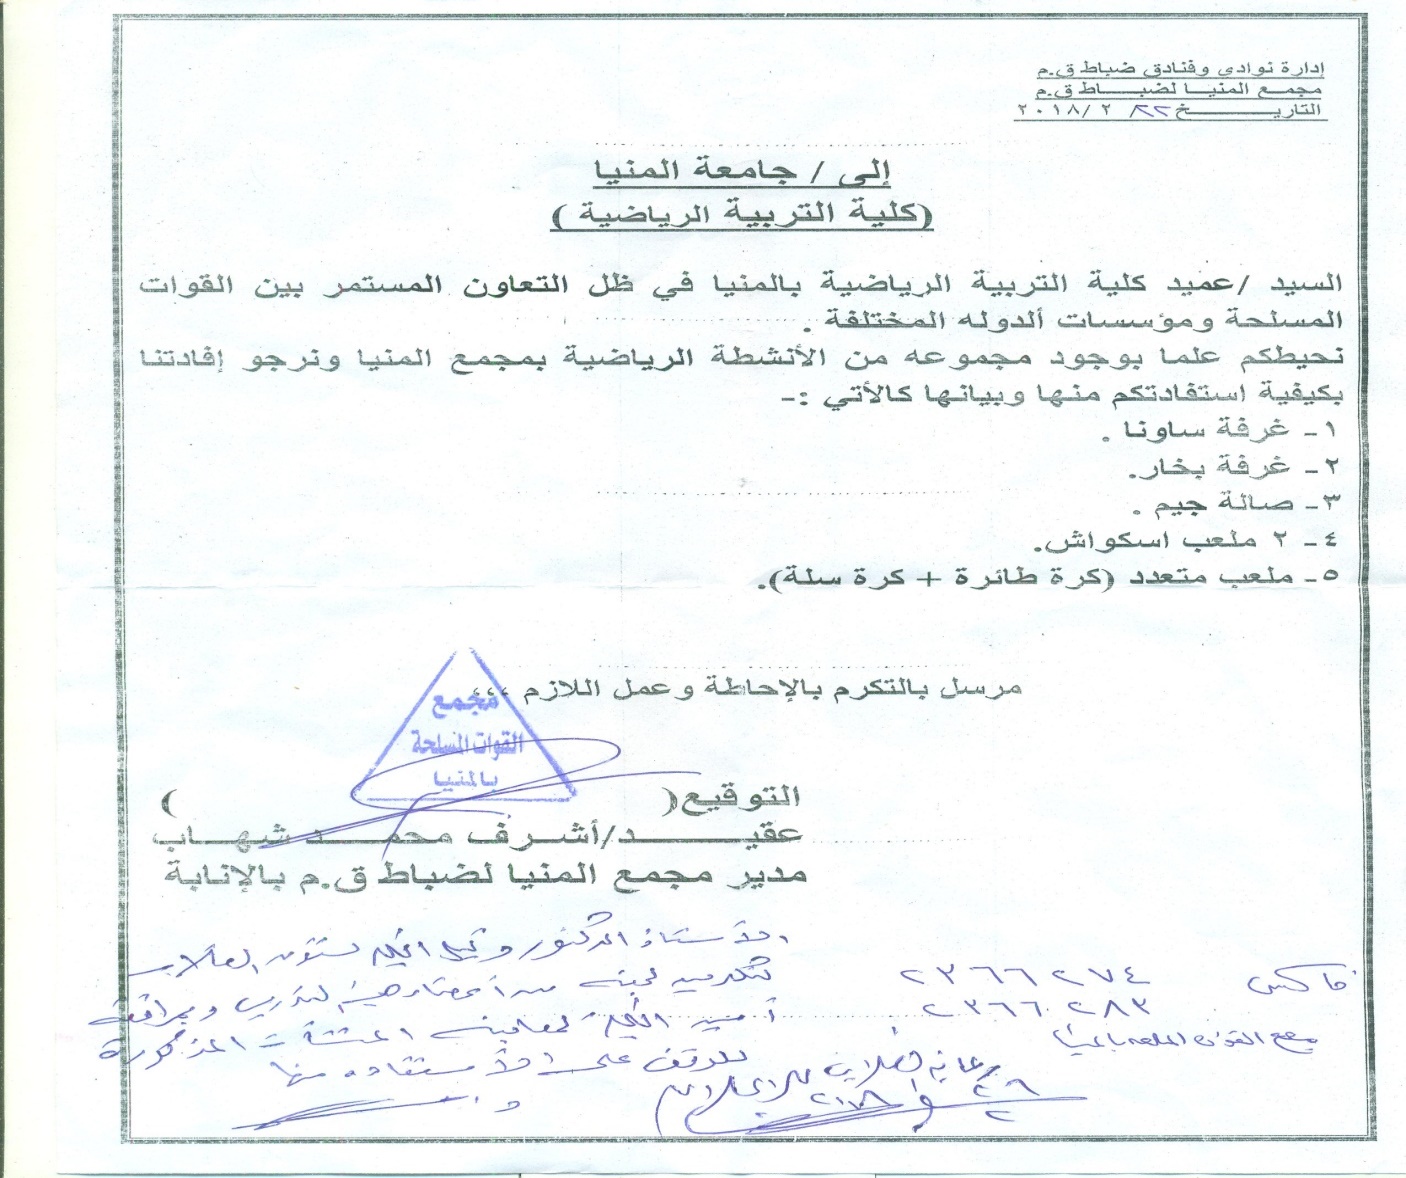 إدارة نوادي وفنادق ضباط ق.م
مجمع المنيا لضباط ق.م
التاريخ ٢٢/ ٢ /٢٠١٨
إلى / جامعة المنيا
(كلية التربية الرياضية )
السيد /عميد كلية التربية الرياضية بالمنيا في ظل التعاون المستمر بين القوات
المسلحة ومؤسسات ألدوله المختلفة .
نحيطكم علما بوجود مجموعه من الأنشطة الرياضية بمجمع المنيا ونرجو إفادتنا
بكيفية استفادتكم منها وبيانها كالأتي :-
١- غرفة ساونا .
٢- غرفة بخار.
٣- صالة جيم .
٤- ٢ ملعب اسكواش.
٥- ملعب متعدد (كرة طائرة + كرة سلة).
مرسل بالتكرم بالإحاطة وعمل اللازم ،،،
مجمع
القوات المسلحة
بالمنيا
التوقيع( )
عقيد/أشرف محمد شهاب
مدير مجمع المنيا لضباط ق.م بالإنابة
الأستاذ الدكتور وكيل الكلية لشئون الطلاب
لتكوين لجنة من أعضاء هيئة التدريس وبمرافقة
أمين الكلية لمعاينة المنشآت المذكورة
للوقوف على الاستفادة منها
فاكس ٢٣٦٦٢٧٤
٢٣٦٦٢٨٣
مجمع القوات المسلحة بالمنيا
رعاية الطلاب